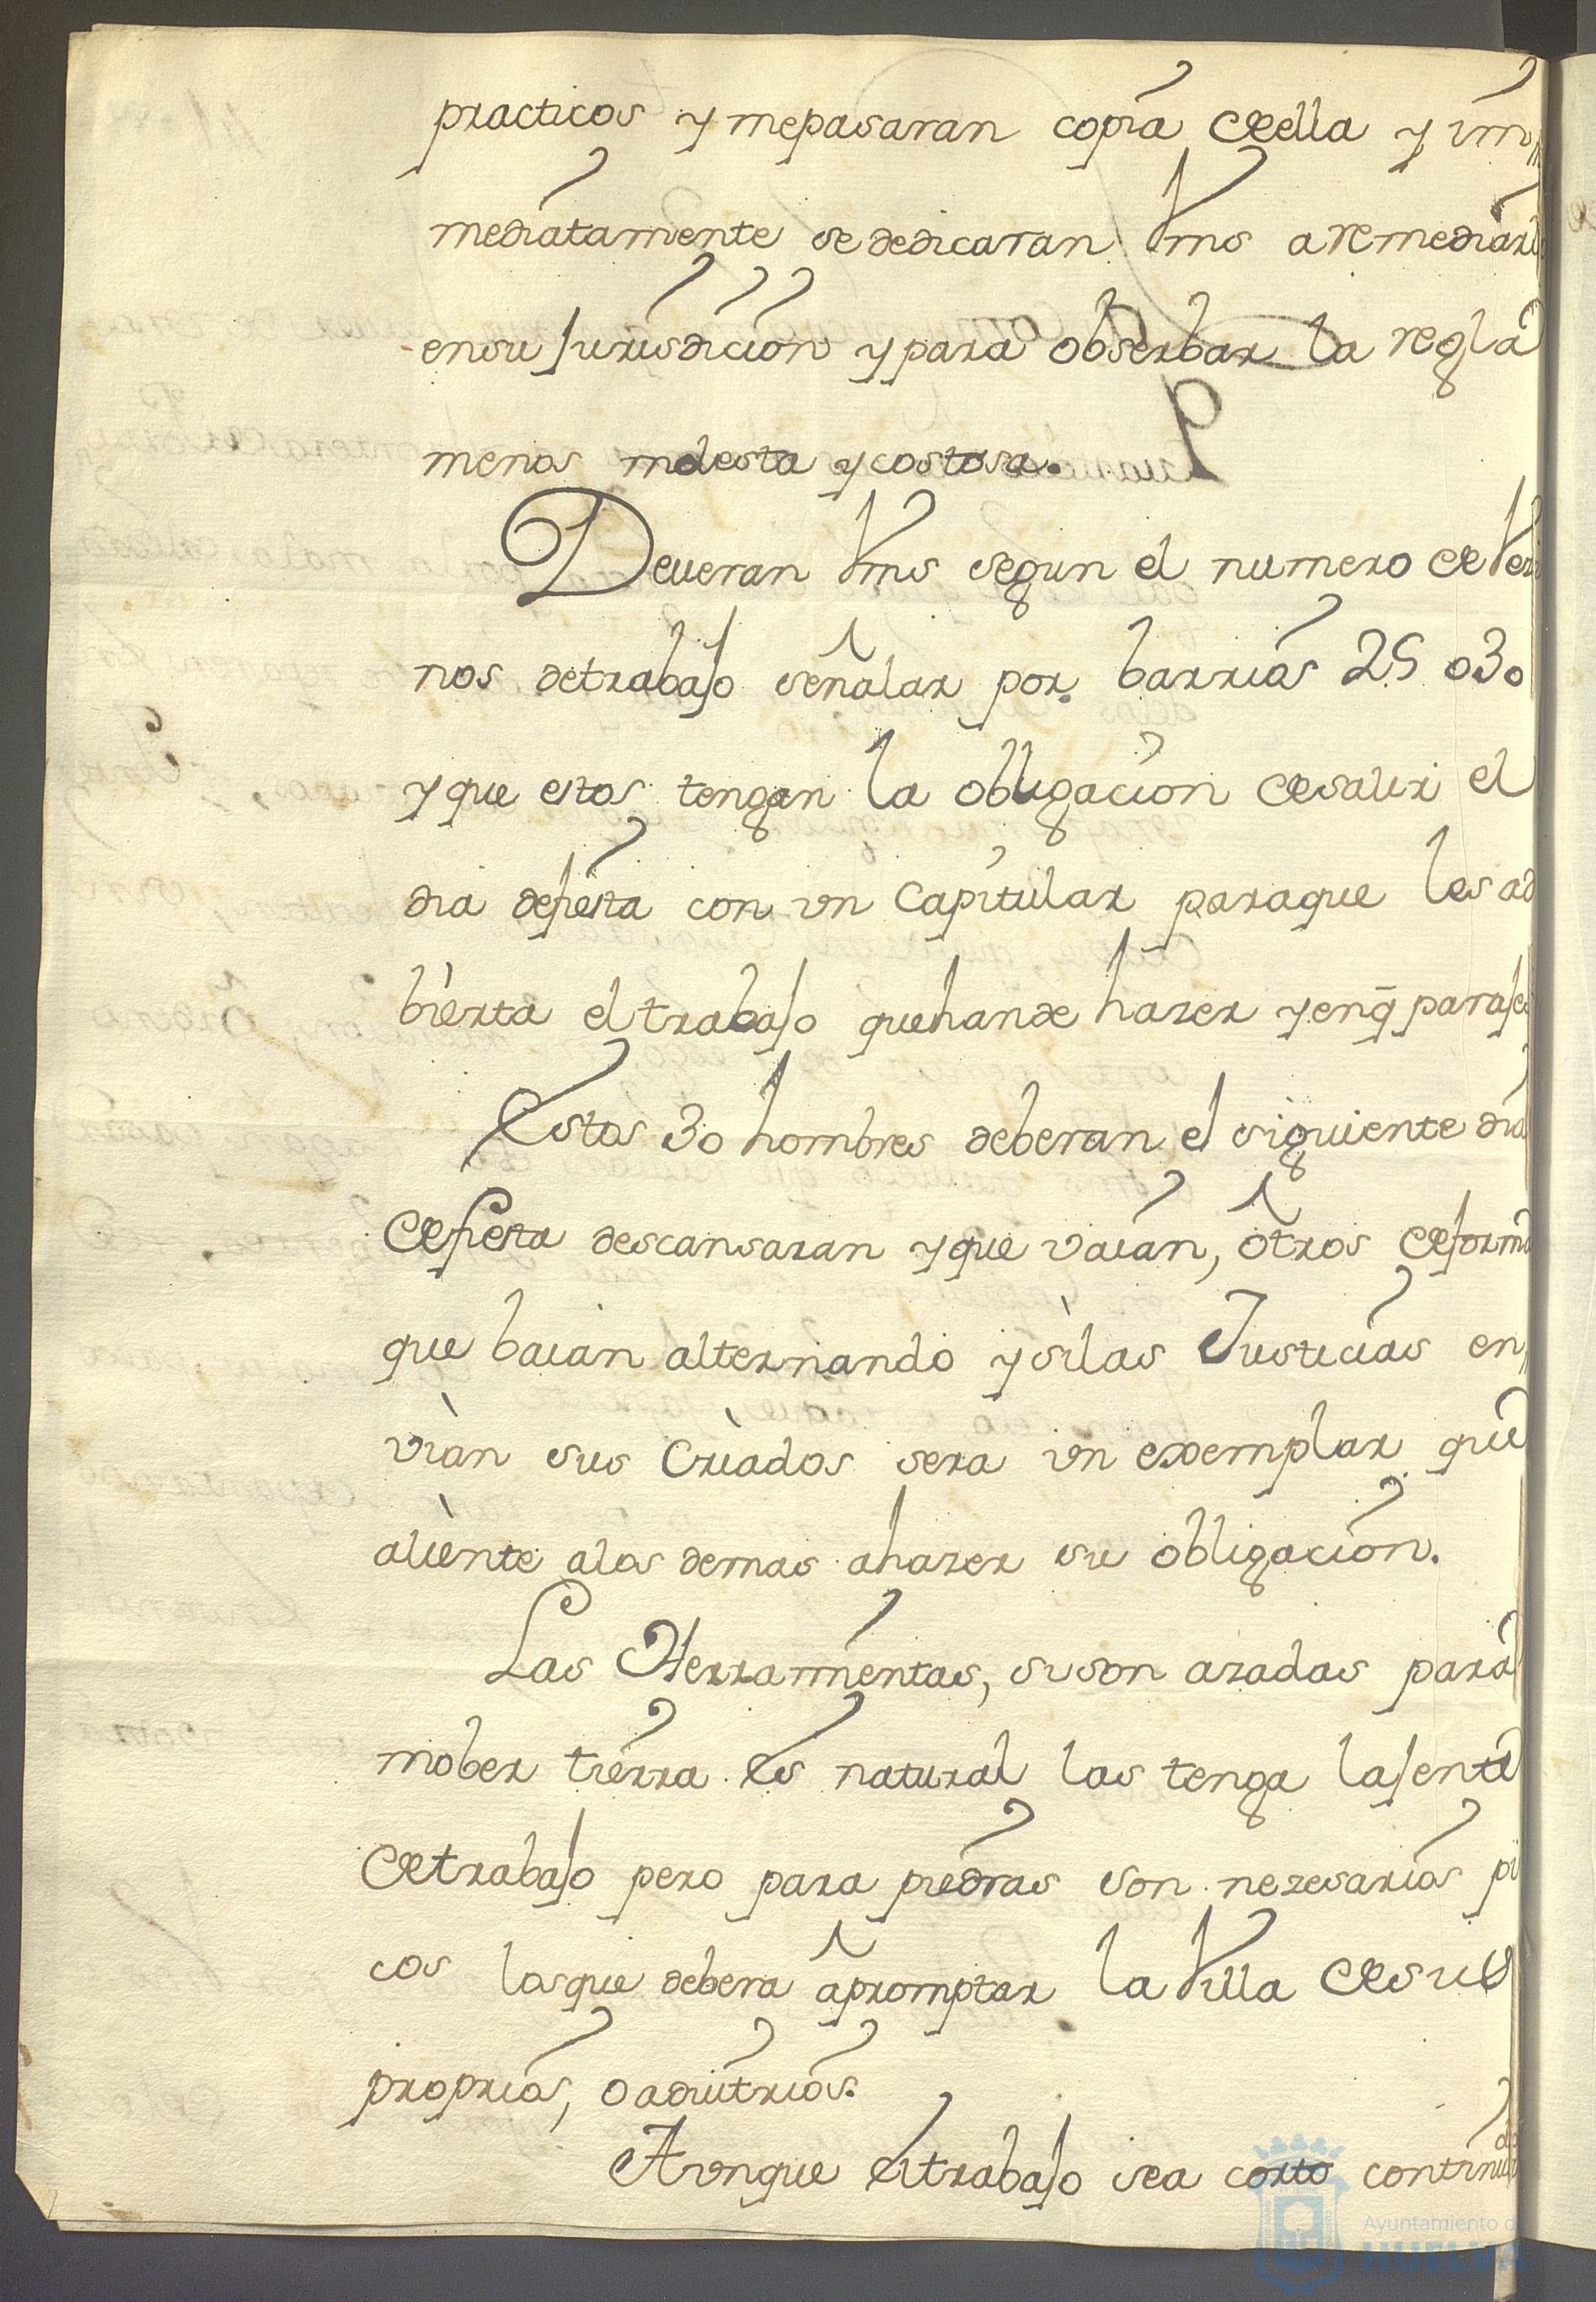 practicos y mepasaran copia deella y im
mediatamente se dedicaran Vms a remediarl
ensu Jurisdicion y para obserbar la regla
menos molesta y costosa.
Deveran Vms segun el numero de Vezi
nos detrabajo señalar por barrios 25 o 30
y que estos tengan la obligacion desalir el
dia defiesta con un Capitular paraque les ad
bierta el trabajo quehande hazer y enq̄ paraje
Estos 30 hombres deberan el siguiente dia
defiesta descansaran y que vaian, otros deforma
que baian alternando y silas Justicias en
vian sus Criados sera un exemplar que
aliente alos demas ahazer su obligacion.
Las Herramientas, si son azadas para
mober tierra es natural las tenga lajente
detrabajo pero para piedras son nezesarios pi
cos losque debera apromptar la Villa desus
proprios, o adiutrios.
Aunque eltrabajo sea corto continu
do
Ayuntamiento de
HUELVA